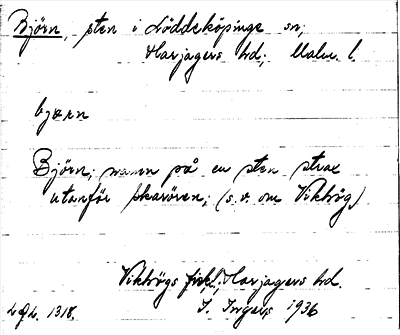 Björn, sten i Löddeköpinge sn,
Harjagers hd; Malm. l.
bjœrn
Björn; namn på en sten strax
utanför skarören; (s.v. om Vikhög)
Vikhögs fiskl. Harjagers hd.
I. Ingers 1936
1318.